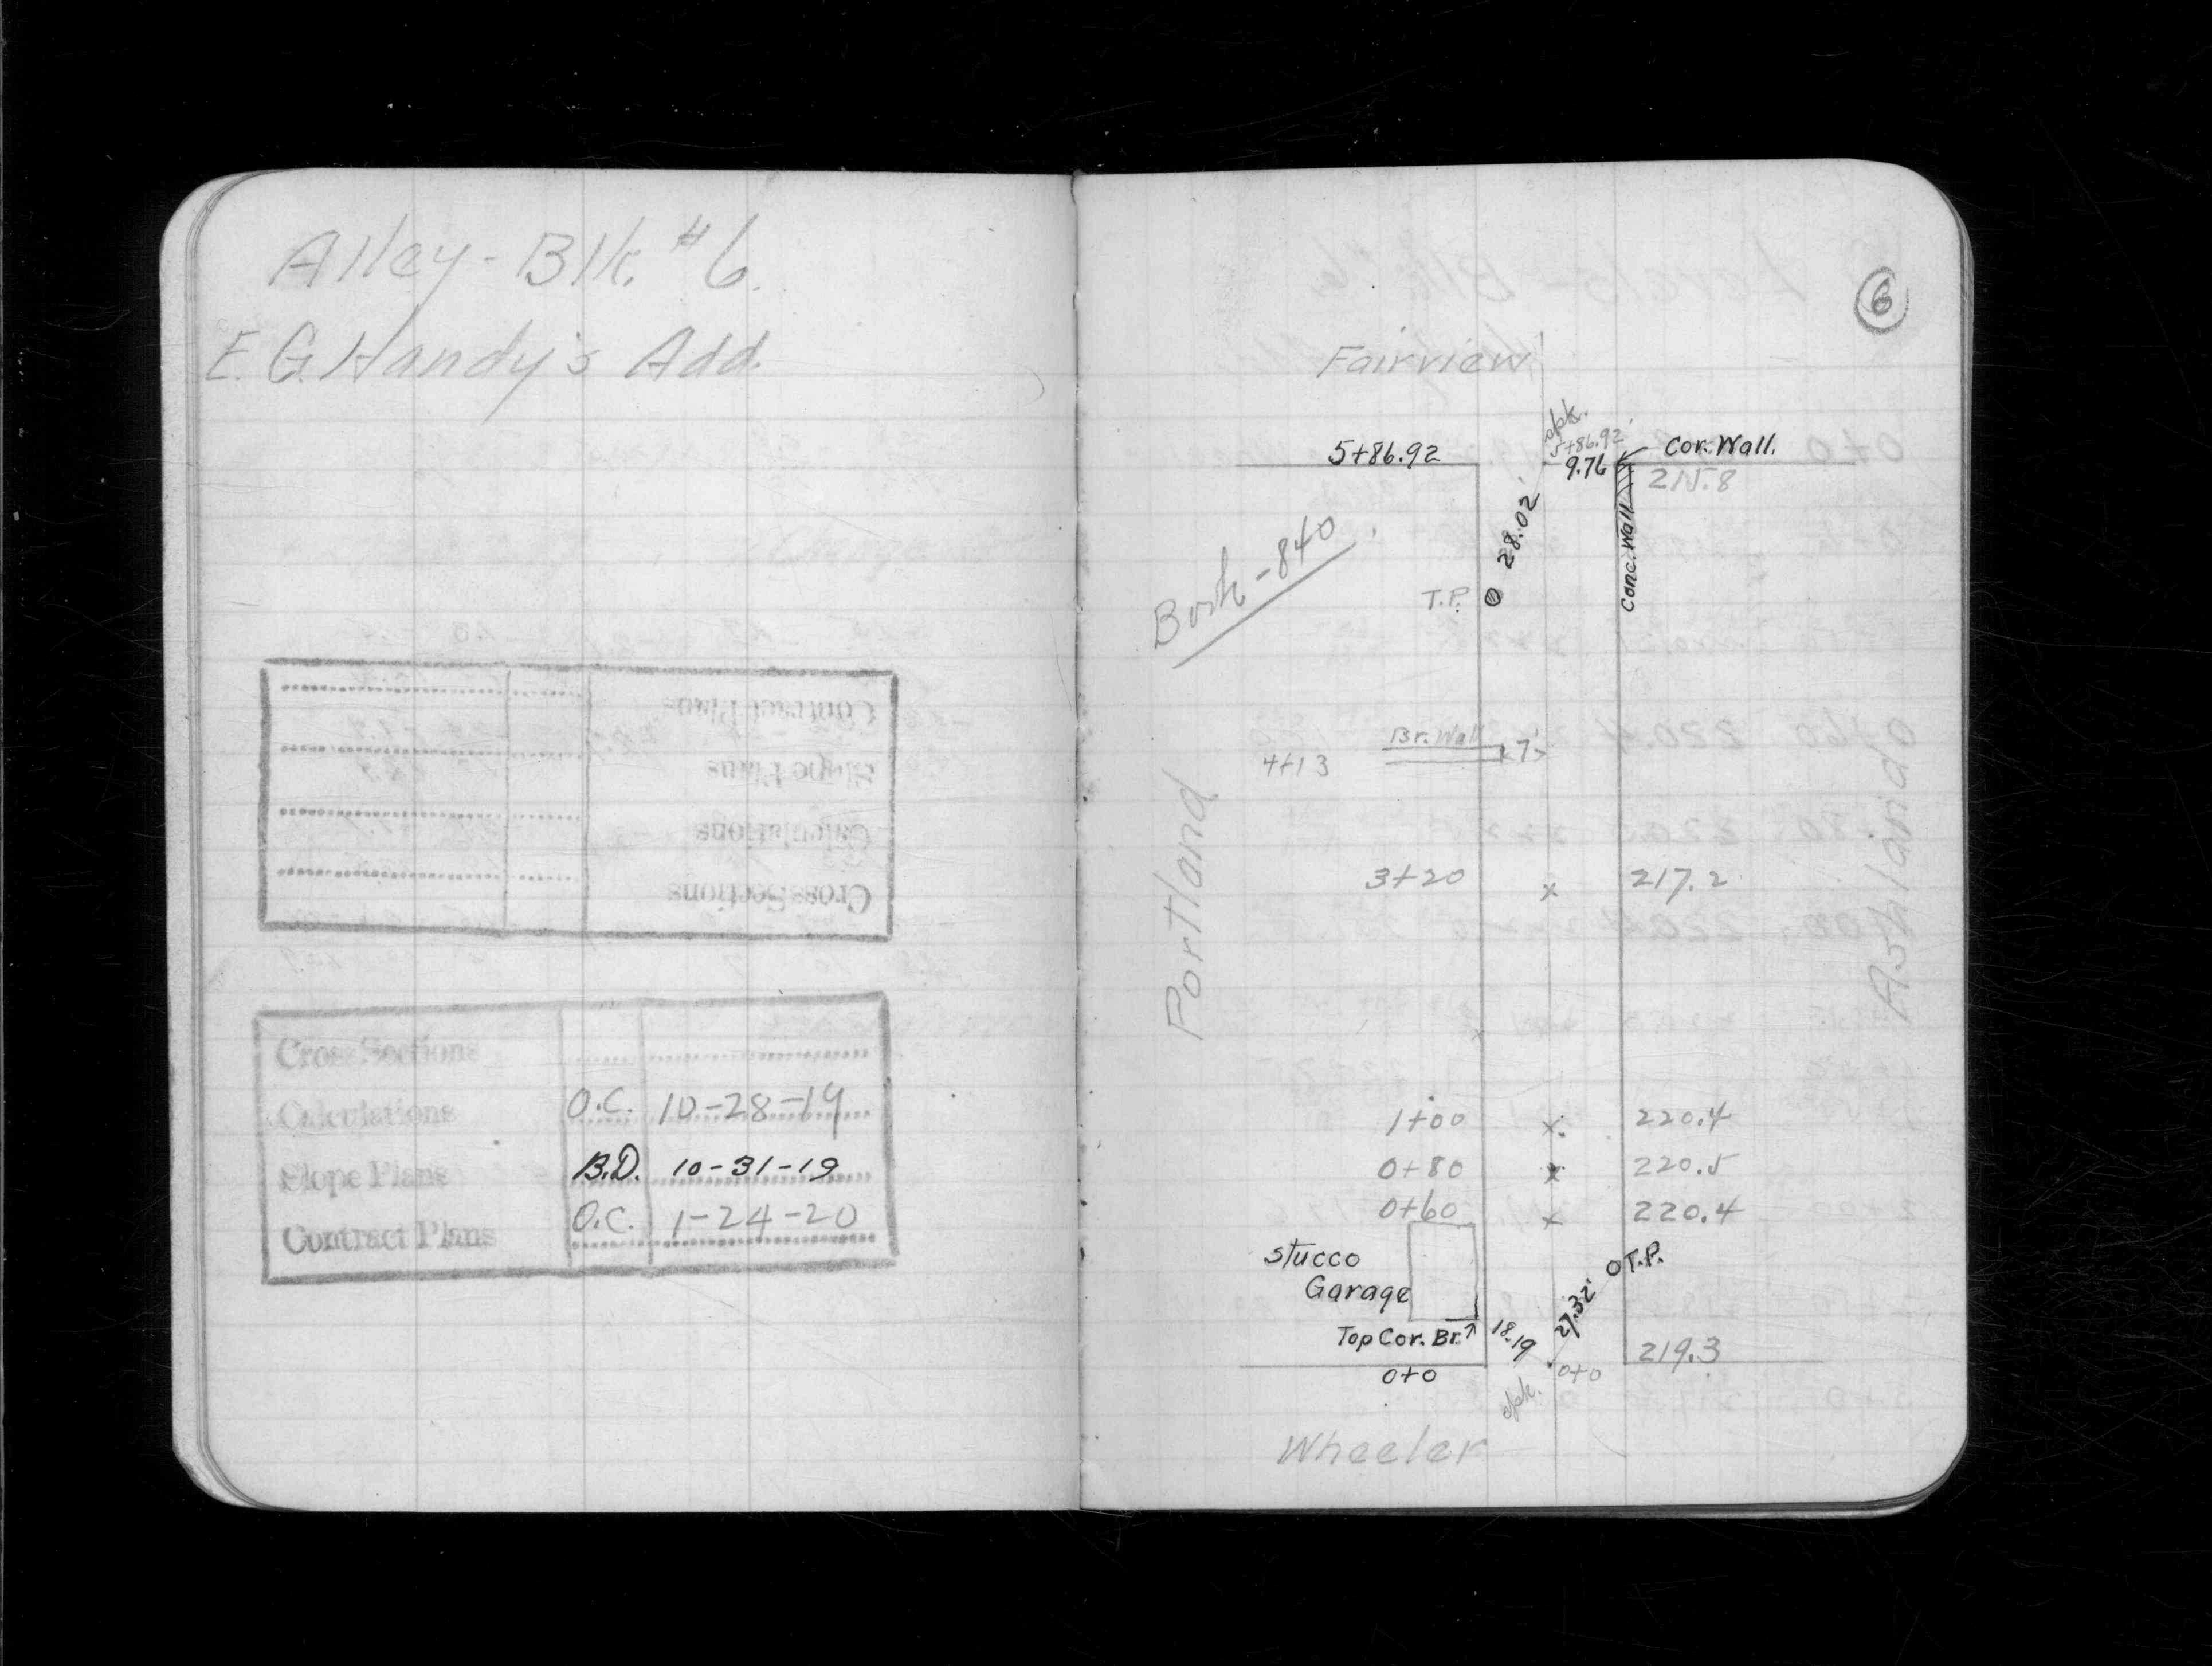 Alley - Blk. #6.
E. G. Handy's Add.
Contract Plans
Slope Plans
Calculations
Cross Sections
Cross Sections
Calculations O.C. 10-28-19
Slope Plans B.D. 10-31-19
Contract Plans O.C. 1-24-20
6
Fairview
spk.
5+86.92
5+86.92 9.76 Cor. Wall.
215.8
28.02'
Conc. Wall
Book-840
T.P.
Br. Wall 7'
4+13
Portland
Ashland
3+20 x 217.2
1+00 x 220.4
0+80 x 220.5
0+60 x 220.4
Stucco
Garage
T.P.
27.32'
Top Cor. Br. 18.19
219.3
0+0 0+0
spk.
Wheeler